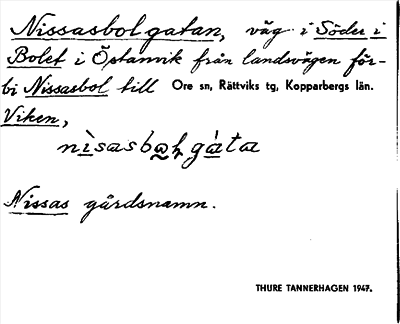 Nissasbolgatan, väg i Söder i
Bolet i Östanvik från landsvägen för-
bi Nissasbol till Ore sn, Rättviks tg, Kopparbergs län.
Viken,
Nissas gårdsnamn.
THURE TANNERHAGEN 1947.